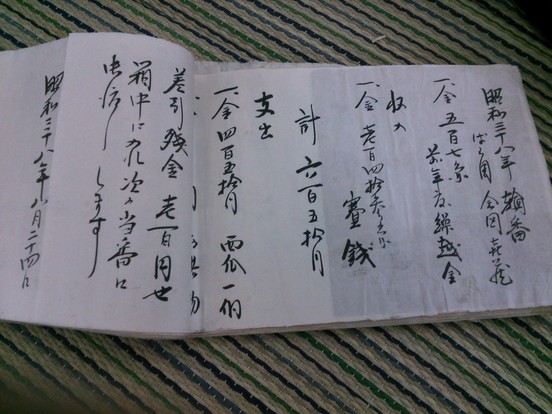 昭和三十八年 輪番
一金 五百七円 前年度繰越金
収入
一金 壱百四拾参円 賽銭
計 六百五拾円
支出
一金 四百五拾円 西瓜一個
差引残金 壱百円也
箱中に入れ次の当番に
申送りします
昭和三十八年八月二十四日